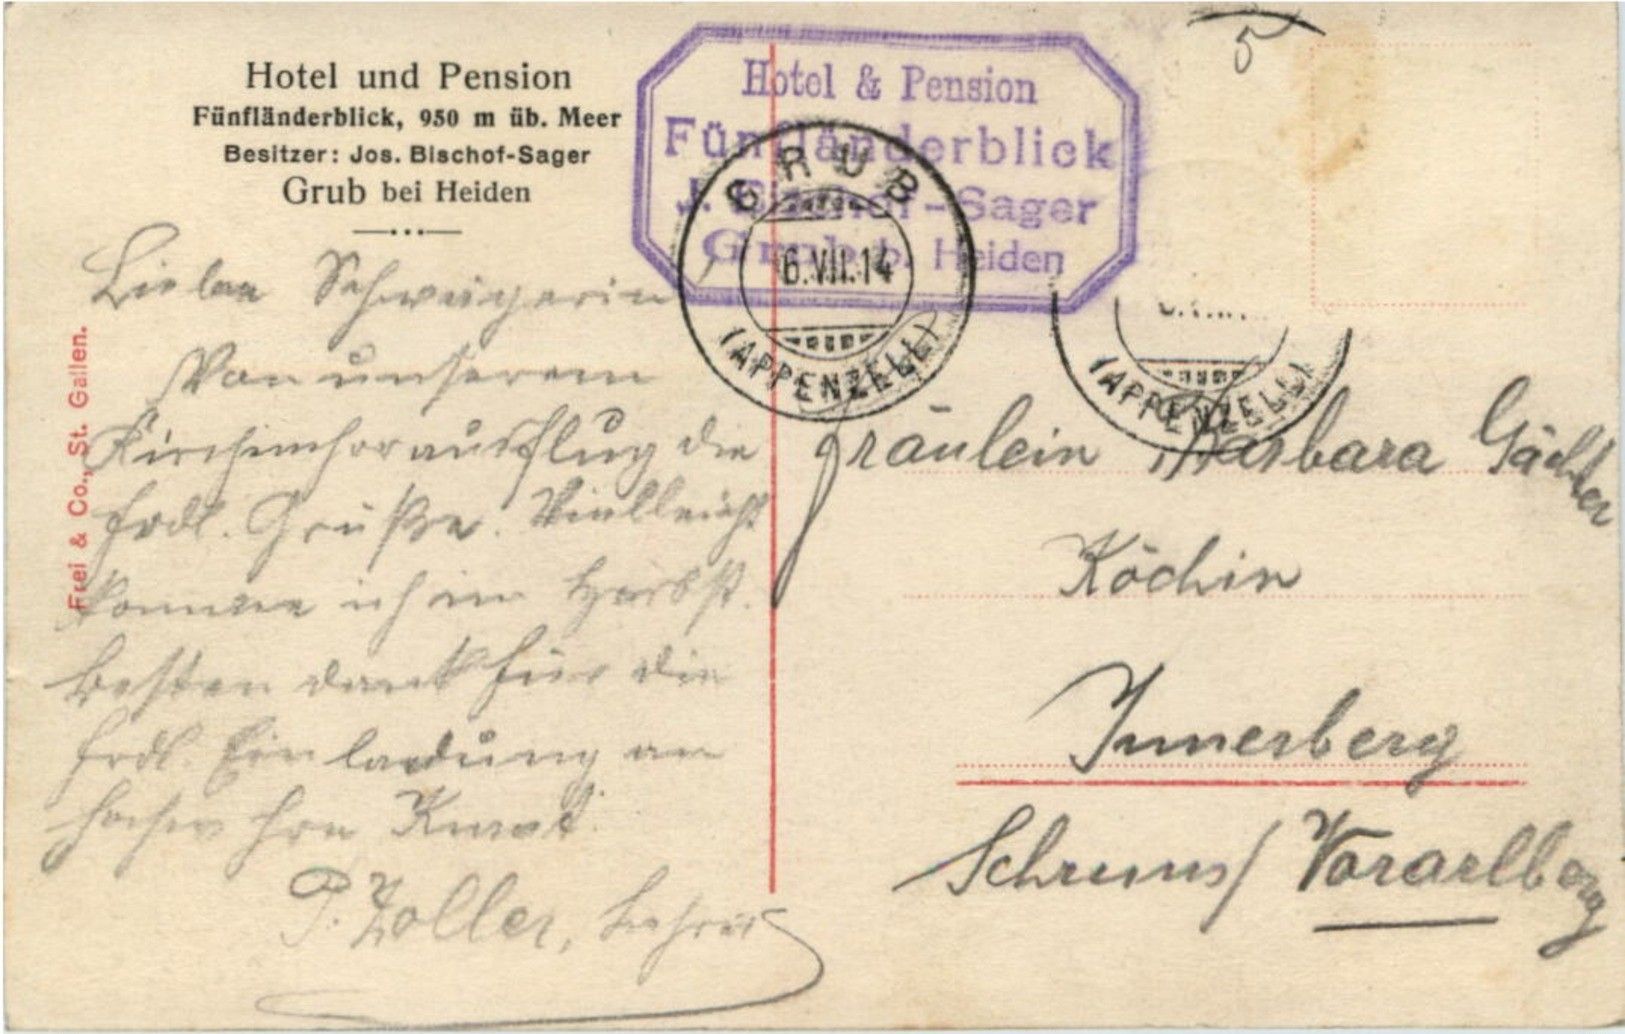 Hotel und Pension
Fünfländerblick, 950 m üb. Meer
Besitzer: Jos. Bischof-Sager
Grub bei Heiden
Hotel & Pension
Fünfländerblick
J. Bischof-Sager
Grub b. Heiden
GRUB
6.VII.14
(APPENZELL)
(APPENZELL)
5
Frei & Co., St. Gallen.
Liebe Schwägerin
Von unserem
Kirchenchorausflug die
frdl. Grüße. Vielleicht
komme ich im Herbst.
Besten dank für die
frdl. Einladung an
Hrn
P. Zoller, Lehrer
Fräulein Barbara Gächter
Köchin
Innerberg
Schruns/Vorarlberg